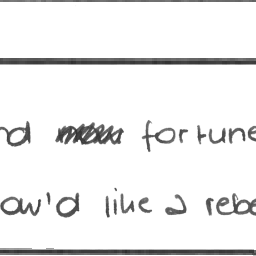 nd fortune
ow'd like a rebe